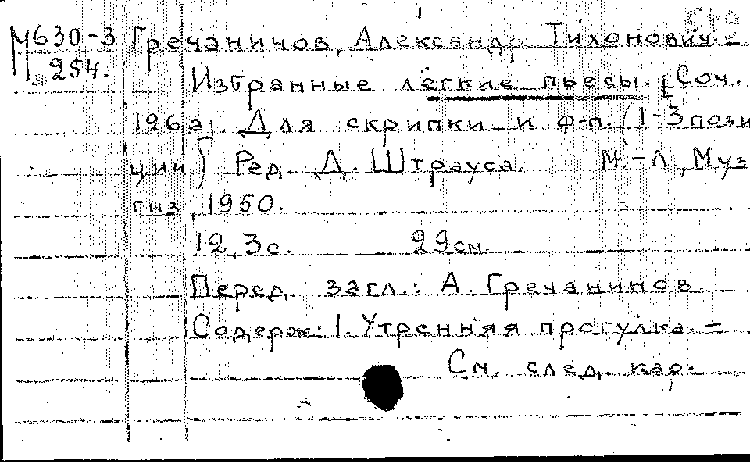 М630-3 Гречанинов, Александр Тихонович.-
254.
Избранные лёгкие пьесы. [Соч.
126а]. Для скрипки и ф-п. (1-3 пози
ции) Ред. Д. Штрауса. М.-Л, Муз
гиз, 1950.
12, 3с. 29см.
Перед загл.: А. Гречанинов
Содерж: 1. Утренняя прогулка -
См. след. кар.